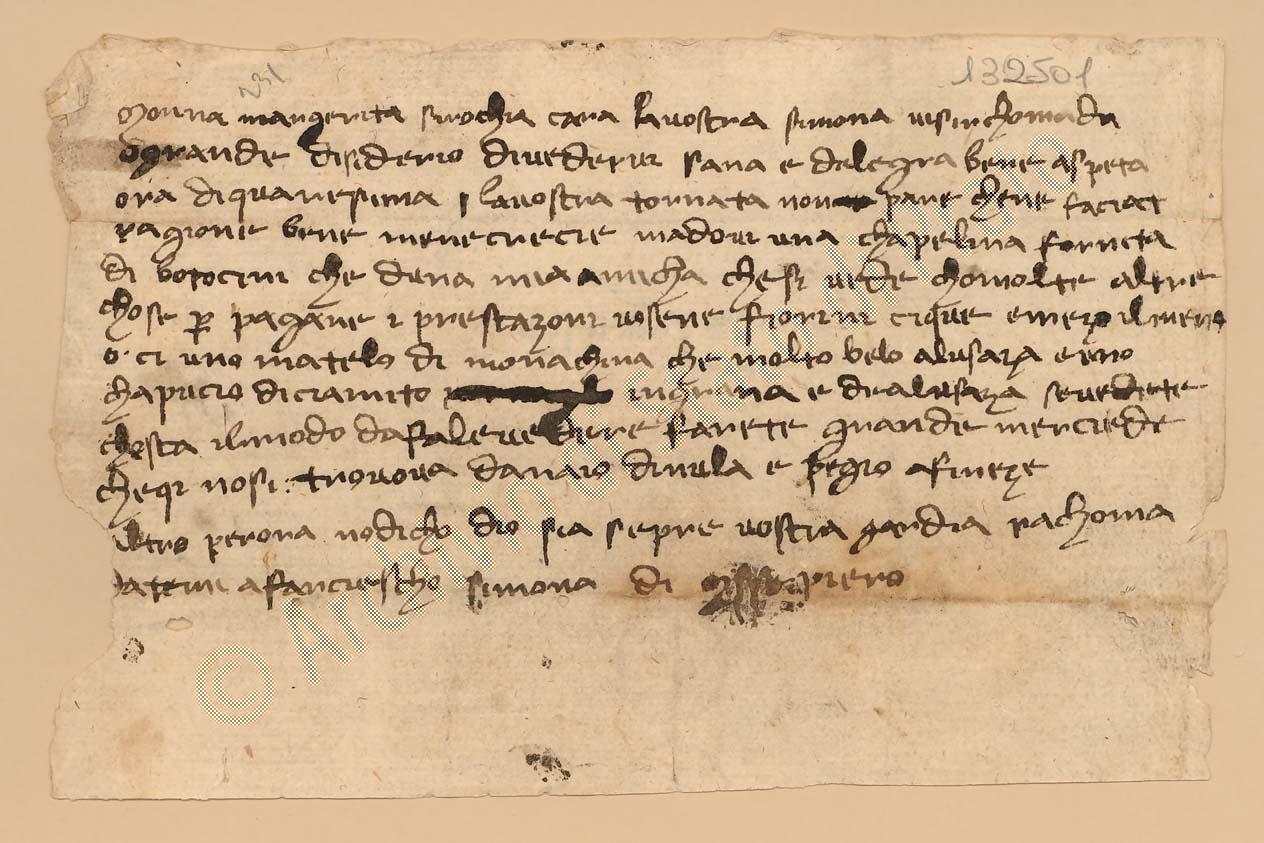 132501
Monna margerita sirochia cara lavostra simona visirichomada
ogrande disiderio divedervi sana e dalegra bene aspeta
ora diquaresima lavostra tornata non pare chene faciat
ragione bene menecrecie madovi una chapelina fornita
di botocini che duna mia amicha chesi vede chomolte altre
chose p pagare i prestazoni vosene fiorini cique emezo ilmeno
o ci uno matelo di monachina che molto belo alusaza e uno
chapucio dicramito ingrana e dealusaza sevedete
chosta ilmodo dafalevedere farete grande merciede
cheqi nosi truovova danaio dinula e pegio afineze
altro perora nodicho dio sia sepre vostra gardia rachoma
datemi afanciescho simona di piero
© Archivio di Stato di Prato